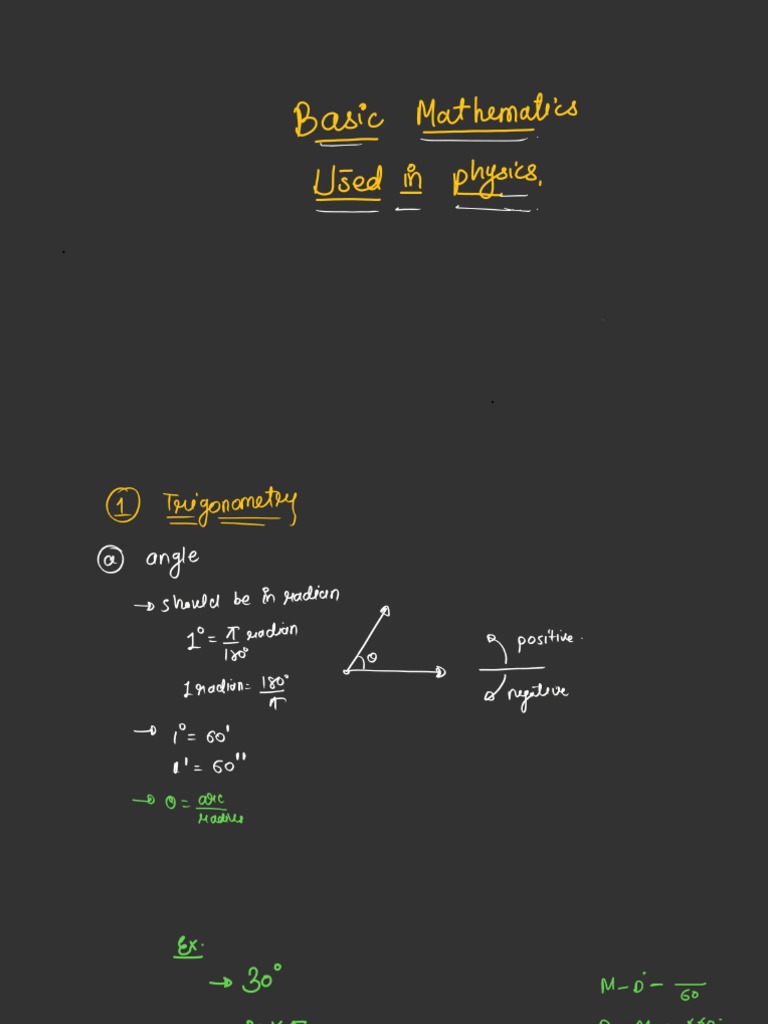 Basic Mathematics
Used in physics.
① Trigonometry
ⓐ angle
→ should be in radian
1° = π/180° radian
1 radian = 180°/π
θ
positive.
negative
→ 1° = 60'
1' = 60''
→ θ = arc/radius
Ex.
→ 30°
M - D - /60